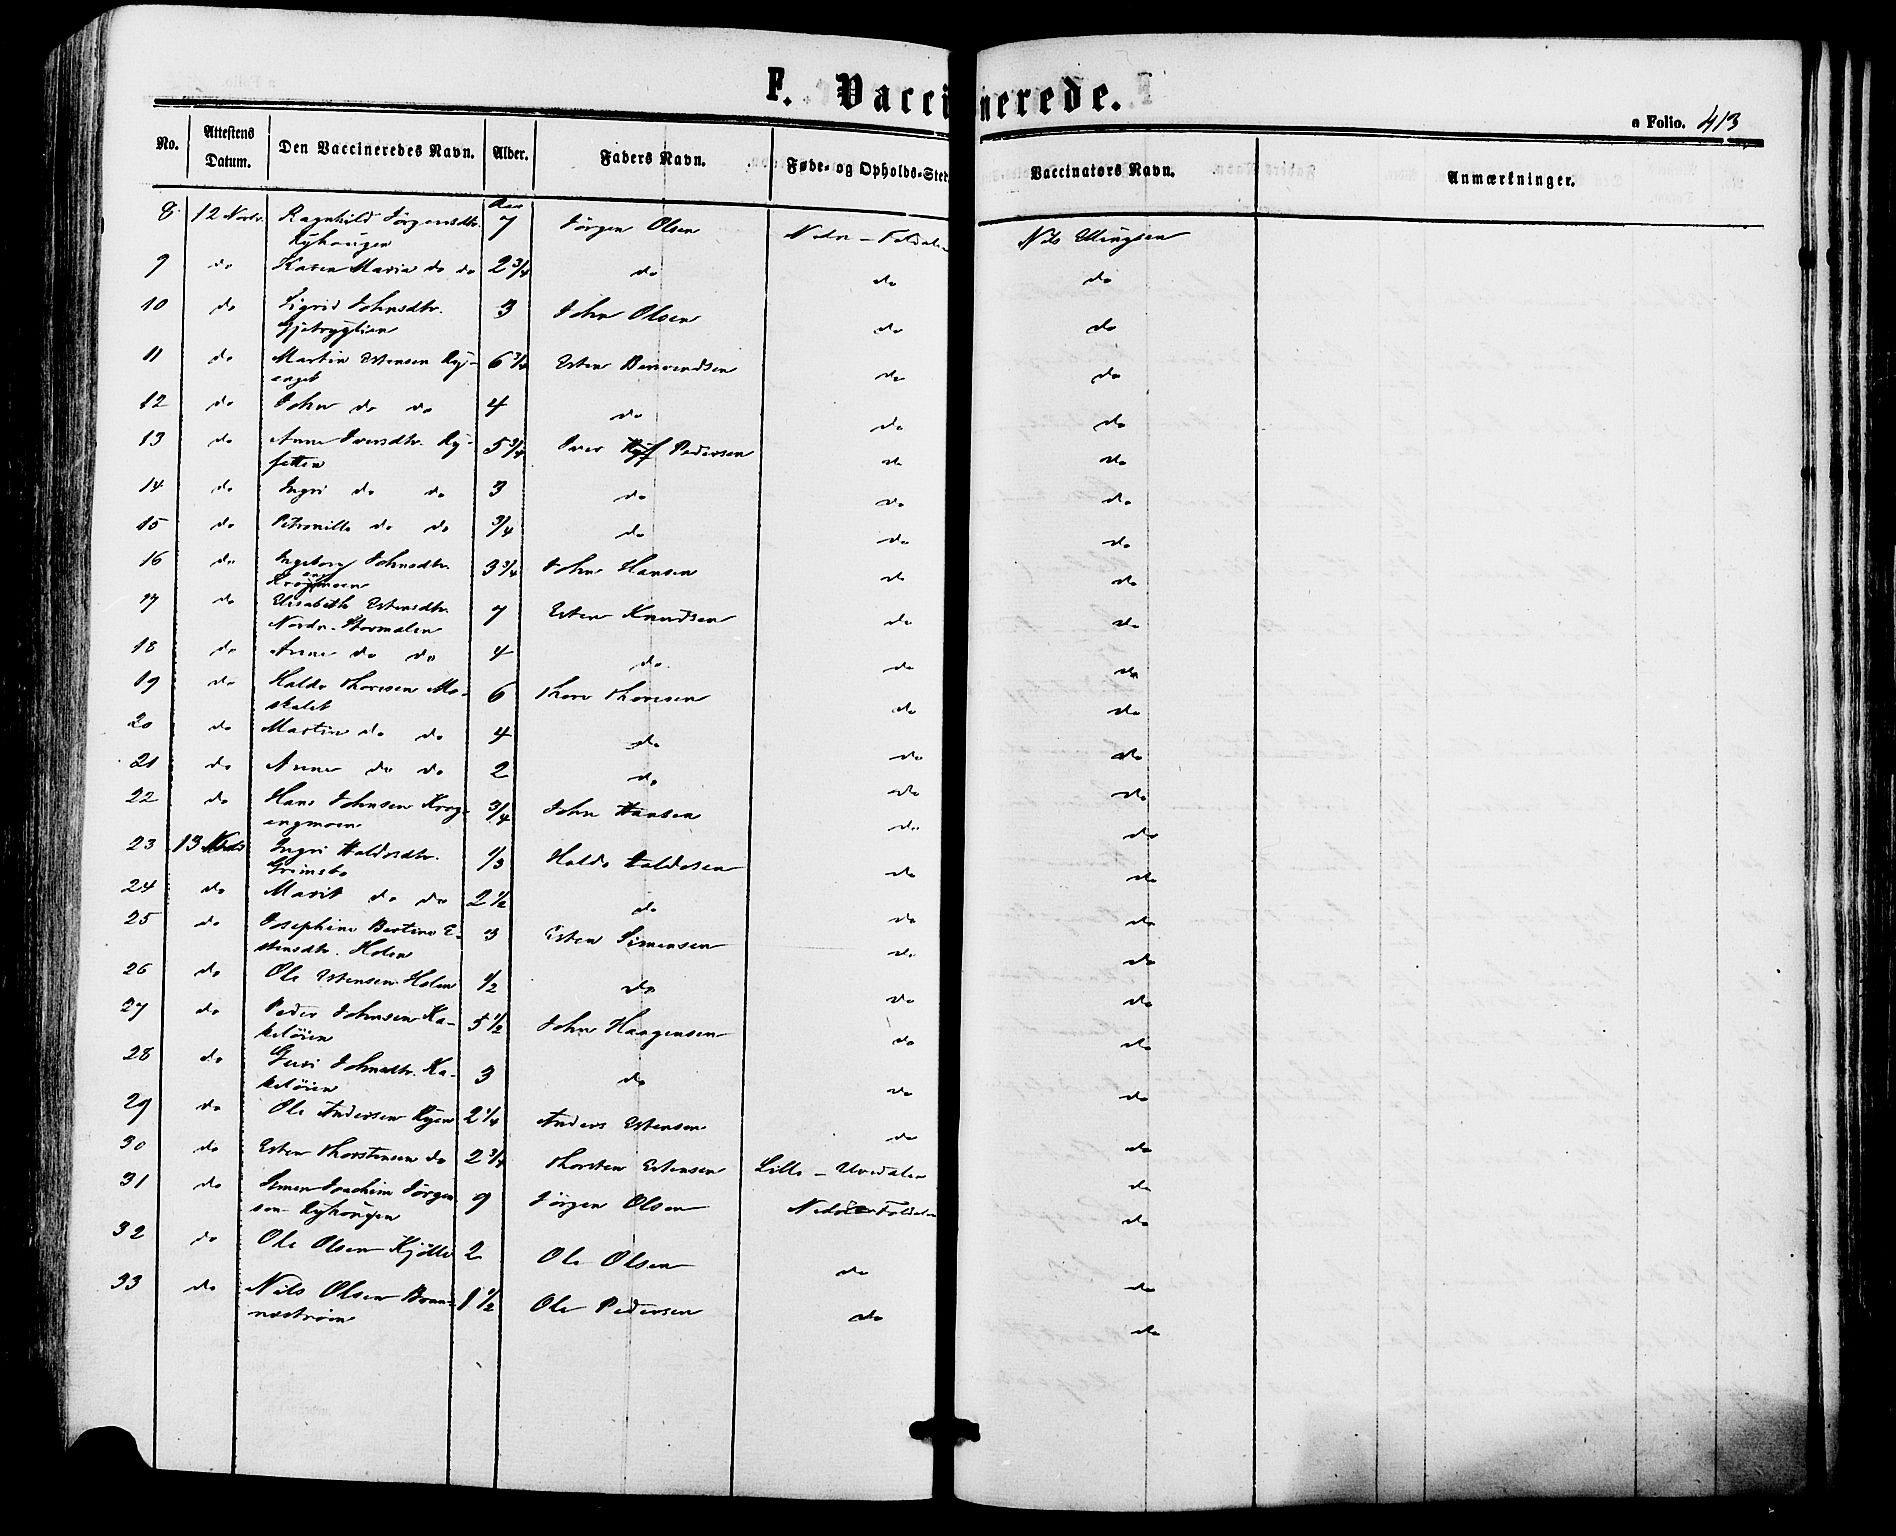 F. Vaccinerede.
a Folio. 413
No. Attestens Datum. Den Vaccineredes Navn. Alder. Faders Navn. Føde- og Opholds-Sted Vaccinators Navn. Anmærkninger.
Aar
8. 12 Novbr. Ragnhild Jørgensdtr. 7 Jørgen Olsen Nedre-Foldalen Nils Ellingsen
Ryhaugen
9 do Karen Maria do do 2 3/4 do do do
10 do Sigrid Johnsdtr. 3 John Olsen do do
11 do Martin Estensen Ry- 6 3/4 Esten do do
enget
12 do John do do 4 do do do
13 do Anne Iversdtr. Ry- 5 3/4 Iver Pedersen do do
fetten
14 do Ingri do do 3 do do do
15 do Petronille do do 3/4 do do do
16 do Ingeborg Johnsdtr. 3 3/4 John Hansen do do
Krogengmoen
17 do Elisabeth Estensdtr. 7 Esten Knudsen do do
Nordr. Stormalen
18 do Anne do do 4 do do do
19 do Haldo Thoresen Mo- 6 Thore Thoresen do do
skalet
20 do Martin do do 4 do do do
21 do Anne do do 2 do do do
22 do Hans Johnsen Krog- 3/4 John Hansen do do
engmoen
23 13 Novbr Ingri Haldosdtr. 1/3 Haldo Haldosen do do
Grimsbo
24 do Marit do do 2 1/2 do do do
25 do Josephine Bertine E- 3 Esten Simensen do do
stensdtr. Holen
26 do Ole Estensen Holen 1/2 do do do
27 do Peder Johnsen Ka- 5 1/2 John Haagensen do do
keløien
28 do Guri Johnsdtr. Ka- 3 do do do
keløien
29 do Ole Andersen Ryen 2 1/4 Anders Estensen do do
30 do Esten Thorstensen do 2 3/4 Thorsten Estensen Lille-Elvedalen do
31 do Simen Joachim Jørgen- 9 Jørgen Olsen Nedre Foldalen do
sen Ryhaugen
32 do Ole Olsen Kjølle 2 Ole Olsen do do
33 do Nils Olsen Bran- 1 1/2 Ole Pedersen do do
næstrøen